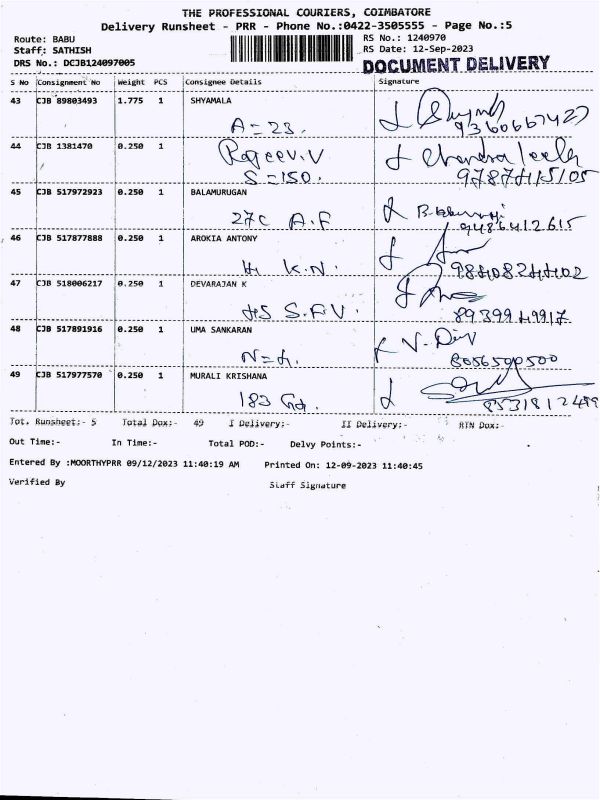 THE PROFESSIONAL COURIERS, COIMBATORE
Delivery Runsheet - PRR - Phone No.:0422-3505555 - Page No.:5
Route: BABU
Staff: SATHISH
DRS No.: DCJB124097005
RS No.: 1240970
RS Date: 12-Sep-2023
DOCUMENT DELIVERY
S No Consignment No Weight PCS Consignee Details Signature
43 CJB 89803493 1.775 1 SHYAMALA
A=23.
9360667427
44 CJB 1381470 0.250 1 Rajeev.V
S=150.
45 CJB 517972923 0.250 1 BALAMURUGAN
27C A.F
9486412615
46 CJB 517877888 0.250 1 AROKIA ANTONY
K.N.
9840824402
47 CJB 518006217 0.250 1 DEVARAJAN K
8939949917
48 CJB 517891916 0.250 1 UMA SANKARAN
8056500500
49 CJB 517977570 0.250 1 MURALI KRISHANA
183
Tot. Runsheet:- 5 Total Dox:- 49 I Delivery:- II Delivery:- RTN Dox:-
Out Time:- In Time:- Total POD:- Delvy Points:-
Entered By :MOORTHYPRR 09/12/2023 11:40:19 AM Printed On: 12-09-2023 11:40:45
Verified By Staff Signature